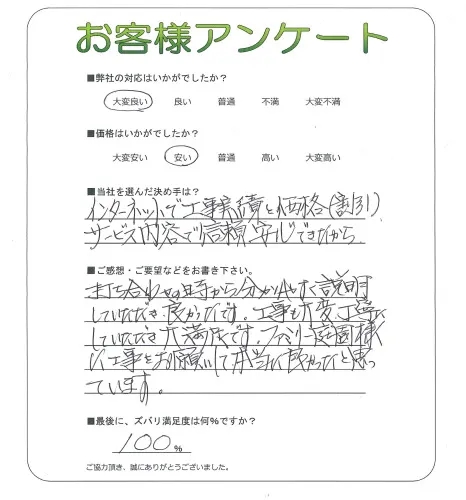 お客様アンケート
■弊社の対応はいかがでしたか？
大変良い 良い 普通 不満 大変不満
■価格はいかがでしたか？
大変安い 安い 普通 高い 大変高い
■当社を選んだ決め手は？
インターネットで工事実績と価格(割引)
サービス内容で信頼、安心できたから
■ご感想・ご要望などをお書き下さい。
打ち合わせの時から分かりやすく説明
していただき良かったです。工事も大変丁寧に
していただき大満足です。ファミリー庭園様
に工事をお願いして本当に良かったと思っ
ています。
■最後に、ズバリ満足度は何％ですか？
100％
ご協力頂き、誠にありがとうございました。